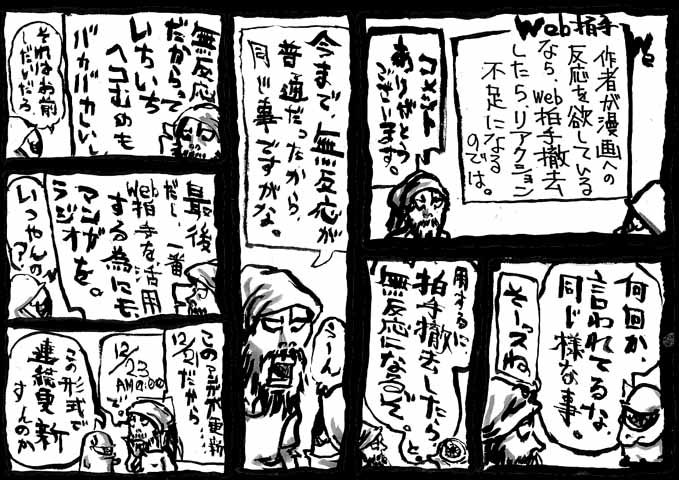 Web拍手
作者が漫画への
反応を欲している
なら、Web拍手撤去
したら、リアクション
不足になる
のでは。
コメント
ありがとう
ございます。
何回か、
言われてるな、
同じ様な事。
そーッスね
用するに、
拍手撤去したら
無反応になるぞ。と。
今まで、無反応が
普通だったから、
同じ事ですがな。
うーん
無反応
だからって
いちいち
ヘコむのも
バカバカしい
それはお前
しだいだろ
最後
だし、一番
Web拍手を活用
する為にも、
マンガ
ラジオを。
いつやんの
?
この漫画が更新
12/21だから
12/23
AM0:00
で。
この形式で
連続更新
すんのか